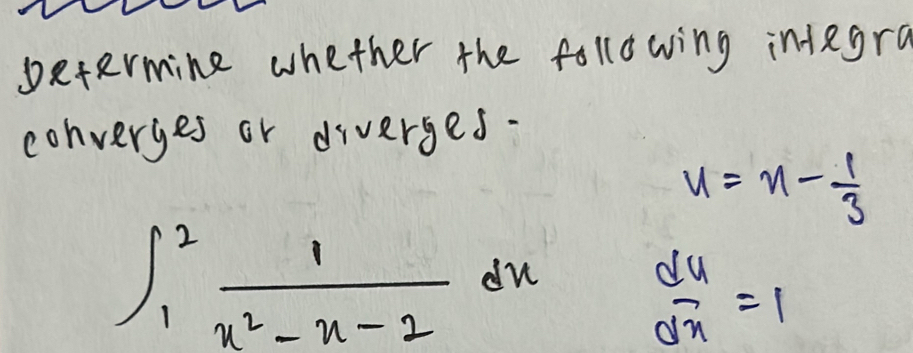 Determine whether the following integra
converges or diverges.
u = x - 1/3
∫₁² 1/(x² - x - 2) dx
du/dx = 1